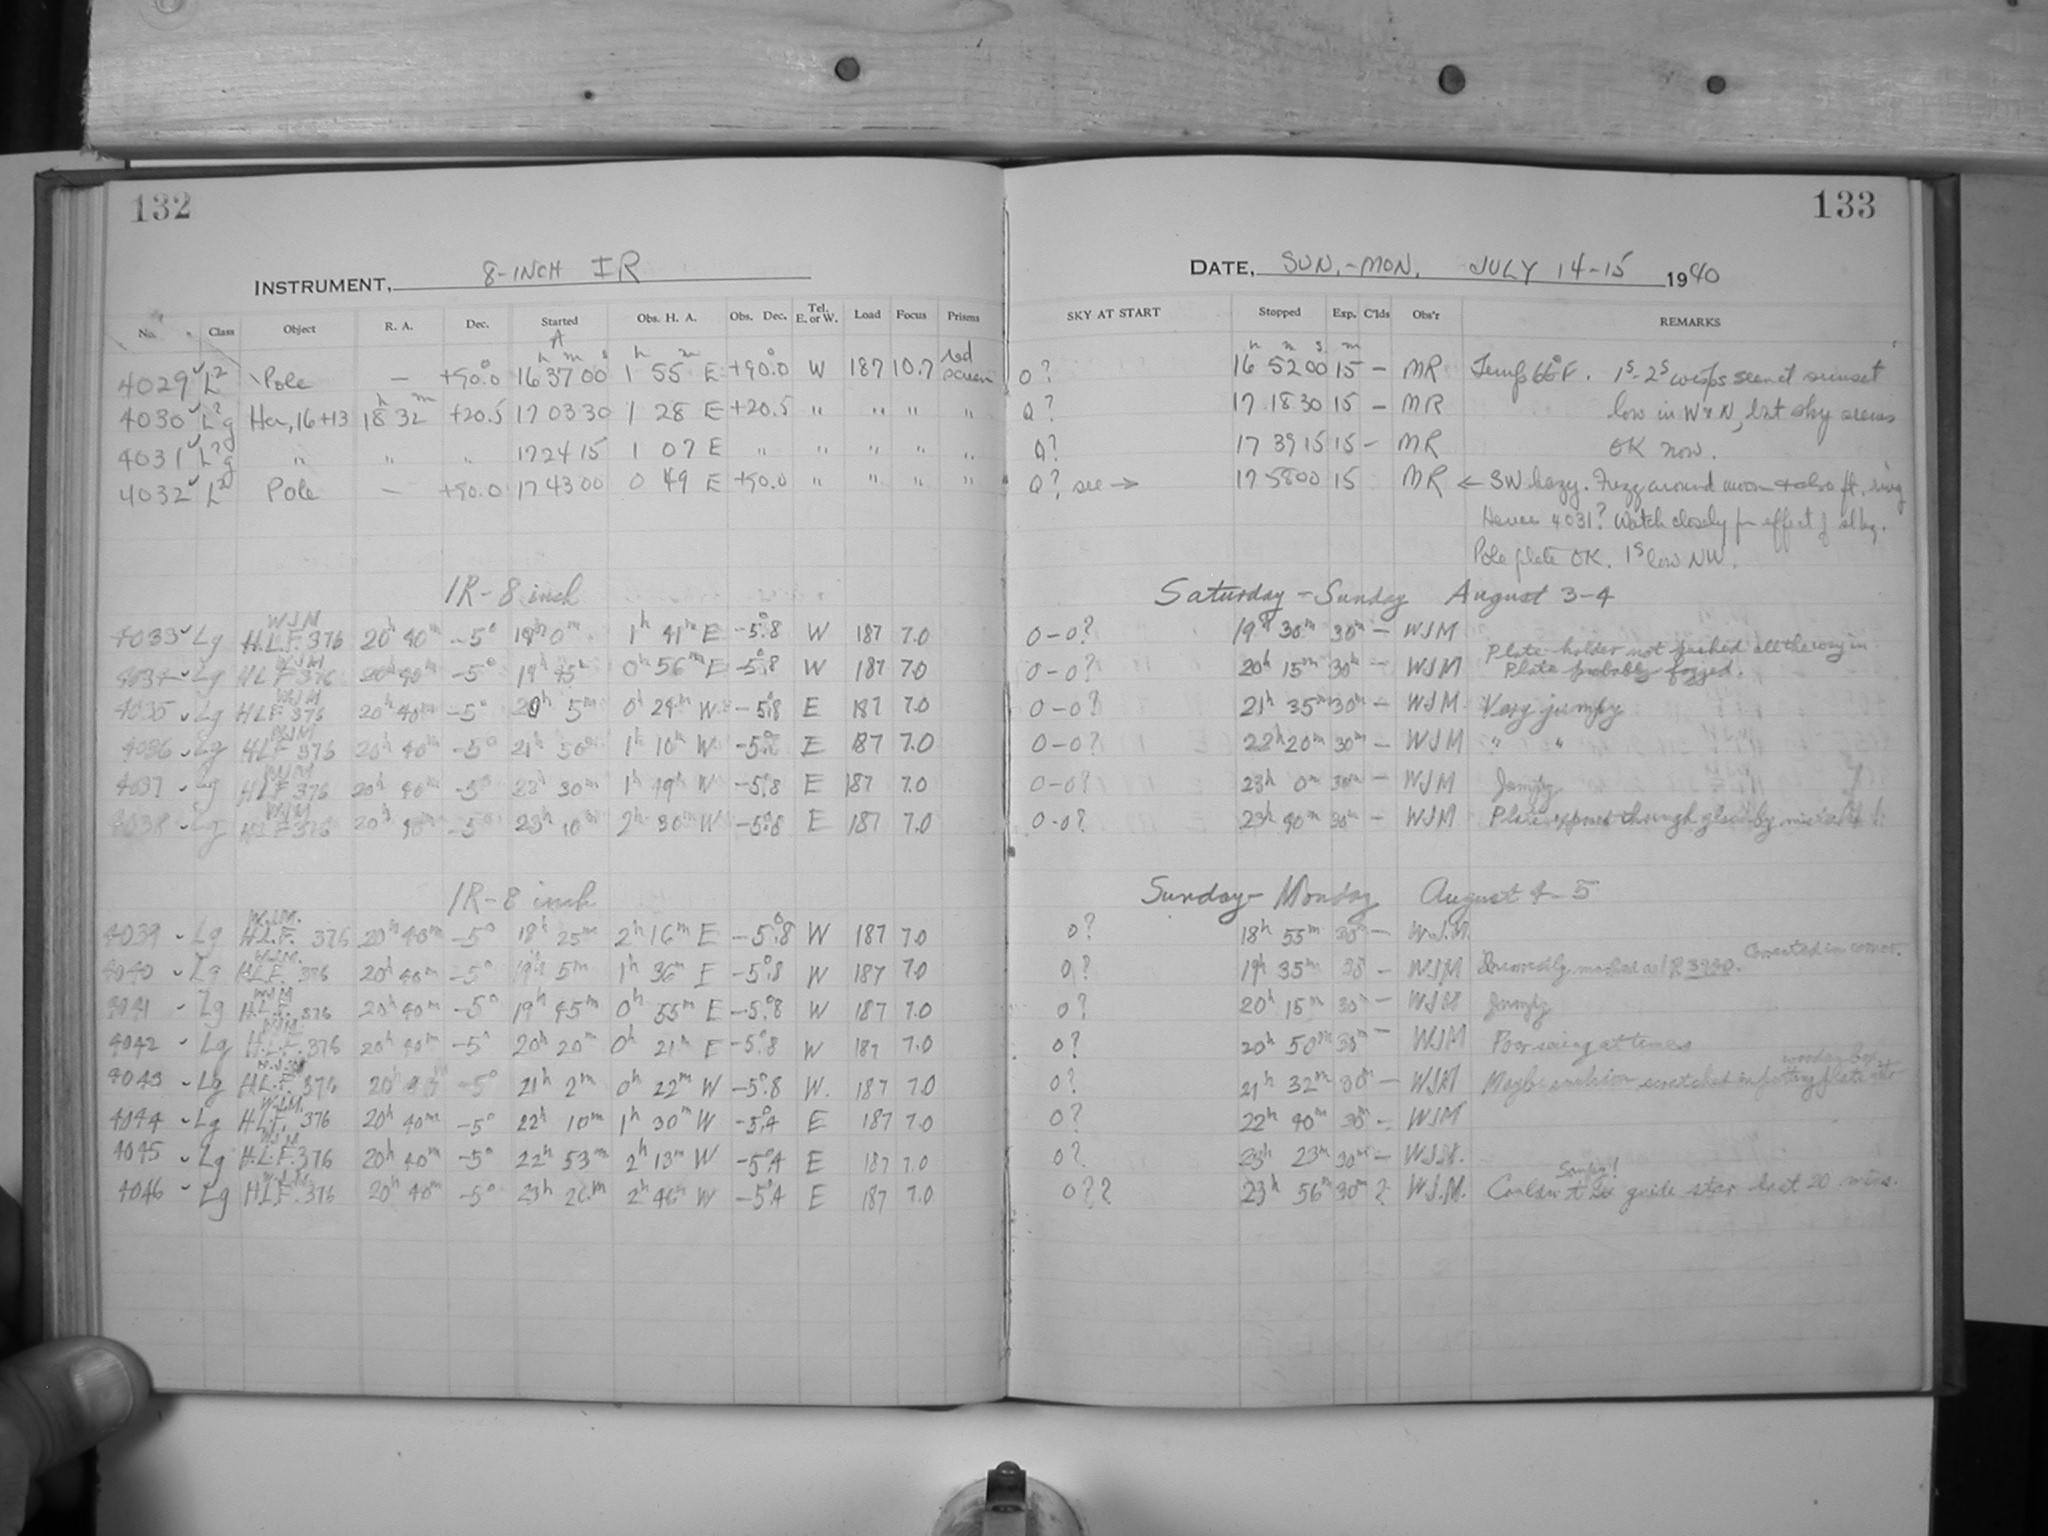 132
133
INSTRUMENT, 8-INCH IR
DATE, SUN.-MON. JULY 14-15 1940
No. Class Object R. A. Dec. Started Obs. H. A. Obs. Dec. Tel. E. or W. Load Focus Prisms SKY AT START Stopped Exp. C'lds Obs'r REMARKS
4029 L2 Pole — +90.0 16 37 00 1 55 E +90.0 W 187 10.7 red screen 0? 16 52 00 15 — MR Temp 66°F. 1s-2s wisps seen at sunset
4030 L2g Her, 16+13 18h 32m +20.5 17 03 30 1 28 E +20.5 " " " " Q? 17 18 30 15 — MR low in W & N, but sky seems
4031 L2g " " " 17 24 15 1 07 E " " " " " Q? 17 39 15 15 — MR OK now.
4032 L2 Pole — +90.0 17 43 00 0 49 E +90.0 " " " " Q? see → 17 58 00 15 MR ← SW hazy. Fuzz around moon + also ft. ring
Hence 4031? Watch closely for effect of
Pole plate OK. 1s low NW.
IR-8 inch Saturday-Sunday August 3-4
4033 Lg WJM H.L.F. 376 20h 40m -5° 19h 0m 1h 41m E -5°.8 W 187 7.0 0-0? 19h 30m 30m — WJM
4034 Lg WJM HLF 376 20h 40m -5° 19h 45m 0h 56m E -5°.8 W 187 7.0 0-0? 20h 15m 30m — WJM Plate-holder not pushed all the way in. Plate probably fogged.
4035 Lg WJM HLF 376 20h 40m -5° 5m 0h 24m W -5°.8 E 187 7.0 0-0? 21h 35m 30m — WJM Very jumpy
4036 Lg WJM HLF 376 20h 40m -5° 21h 50m 1h 10m W -5°.8 E 187 7.0 0-0? 22h 20m 30m — WJM " "
4037 Lg WJM HLF 376 20h 40m -5° 22h 30m 1h 49m W -5°.8 E 187 7.0 0-0? 23h 0m 30m — WJM Jumpy
4038 Lg WJM HLF 376 20h 40m -5° 23h 10m 2h 30m W -5°.8 E 187 7.0 0-0? 23h 40m 30m — WJM Plate exposed through glass by mistake!
IR-8 inch Sunday-Monday August 4-5
4039 Lg W.J.M. H.L.F. 376 20h 40m -5° 18h 25m 2h 16m E -5°.8 W 187 7.0 0? 18h 55m 30m — W.J.M
4040 Lg WJM HLF 376 20h 40m -5° 19h 5m 1h 36m E -5°.8 W 187 7.0 0? 19h 35m 30 — WJM Incorrectly marked as IR 3940. Corrected in corner.
4041 Lg WJM H.L.F. 376 20h 40m -5° 19h 45m 0h 55m E -5°.8 W 187 7.0 0? 20h 15m 30m — WJM Jumpy
4042 Lg WJM H.L.F. 376 20h 40m -5° 20h 20m 0h 21m E -5°.8 W 187 7.0 0? 20h 50m 30m — WJM Poor seeing at times
4043 Lg HLF 376 20h 40m -5° 21h 2m 0h 22m W -5°.8 W. 187 7.0 0? 21h 32m 30m — WJM Maybe emulsion scratched in putting plate into wooden box.
4044 Lg W.J.M. HLF. 376 20h 40m -5° 22h 10m 1h 30m W -5°.4 E 187 7.0 0? 22h 40m 30m — WJM
4045 Lg WJM H.L.F. 376 20h 40m -5° 22h 53m 2h 13m W -5°.4 E 187 7.0 0? 23h 23m 30m — WJM.
4046 Lg W.J.M. HLF. 376 20h 40m -5° 23h 26m 2h 46m W -5°.4 E 187 7.0 0?? 23h 56m 30m ? W.J.M. Couldn't see guide star last 20 mins.